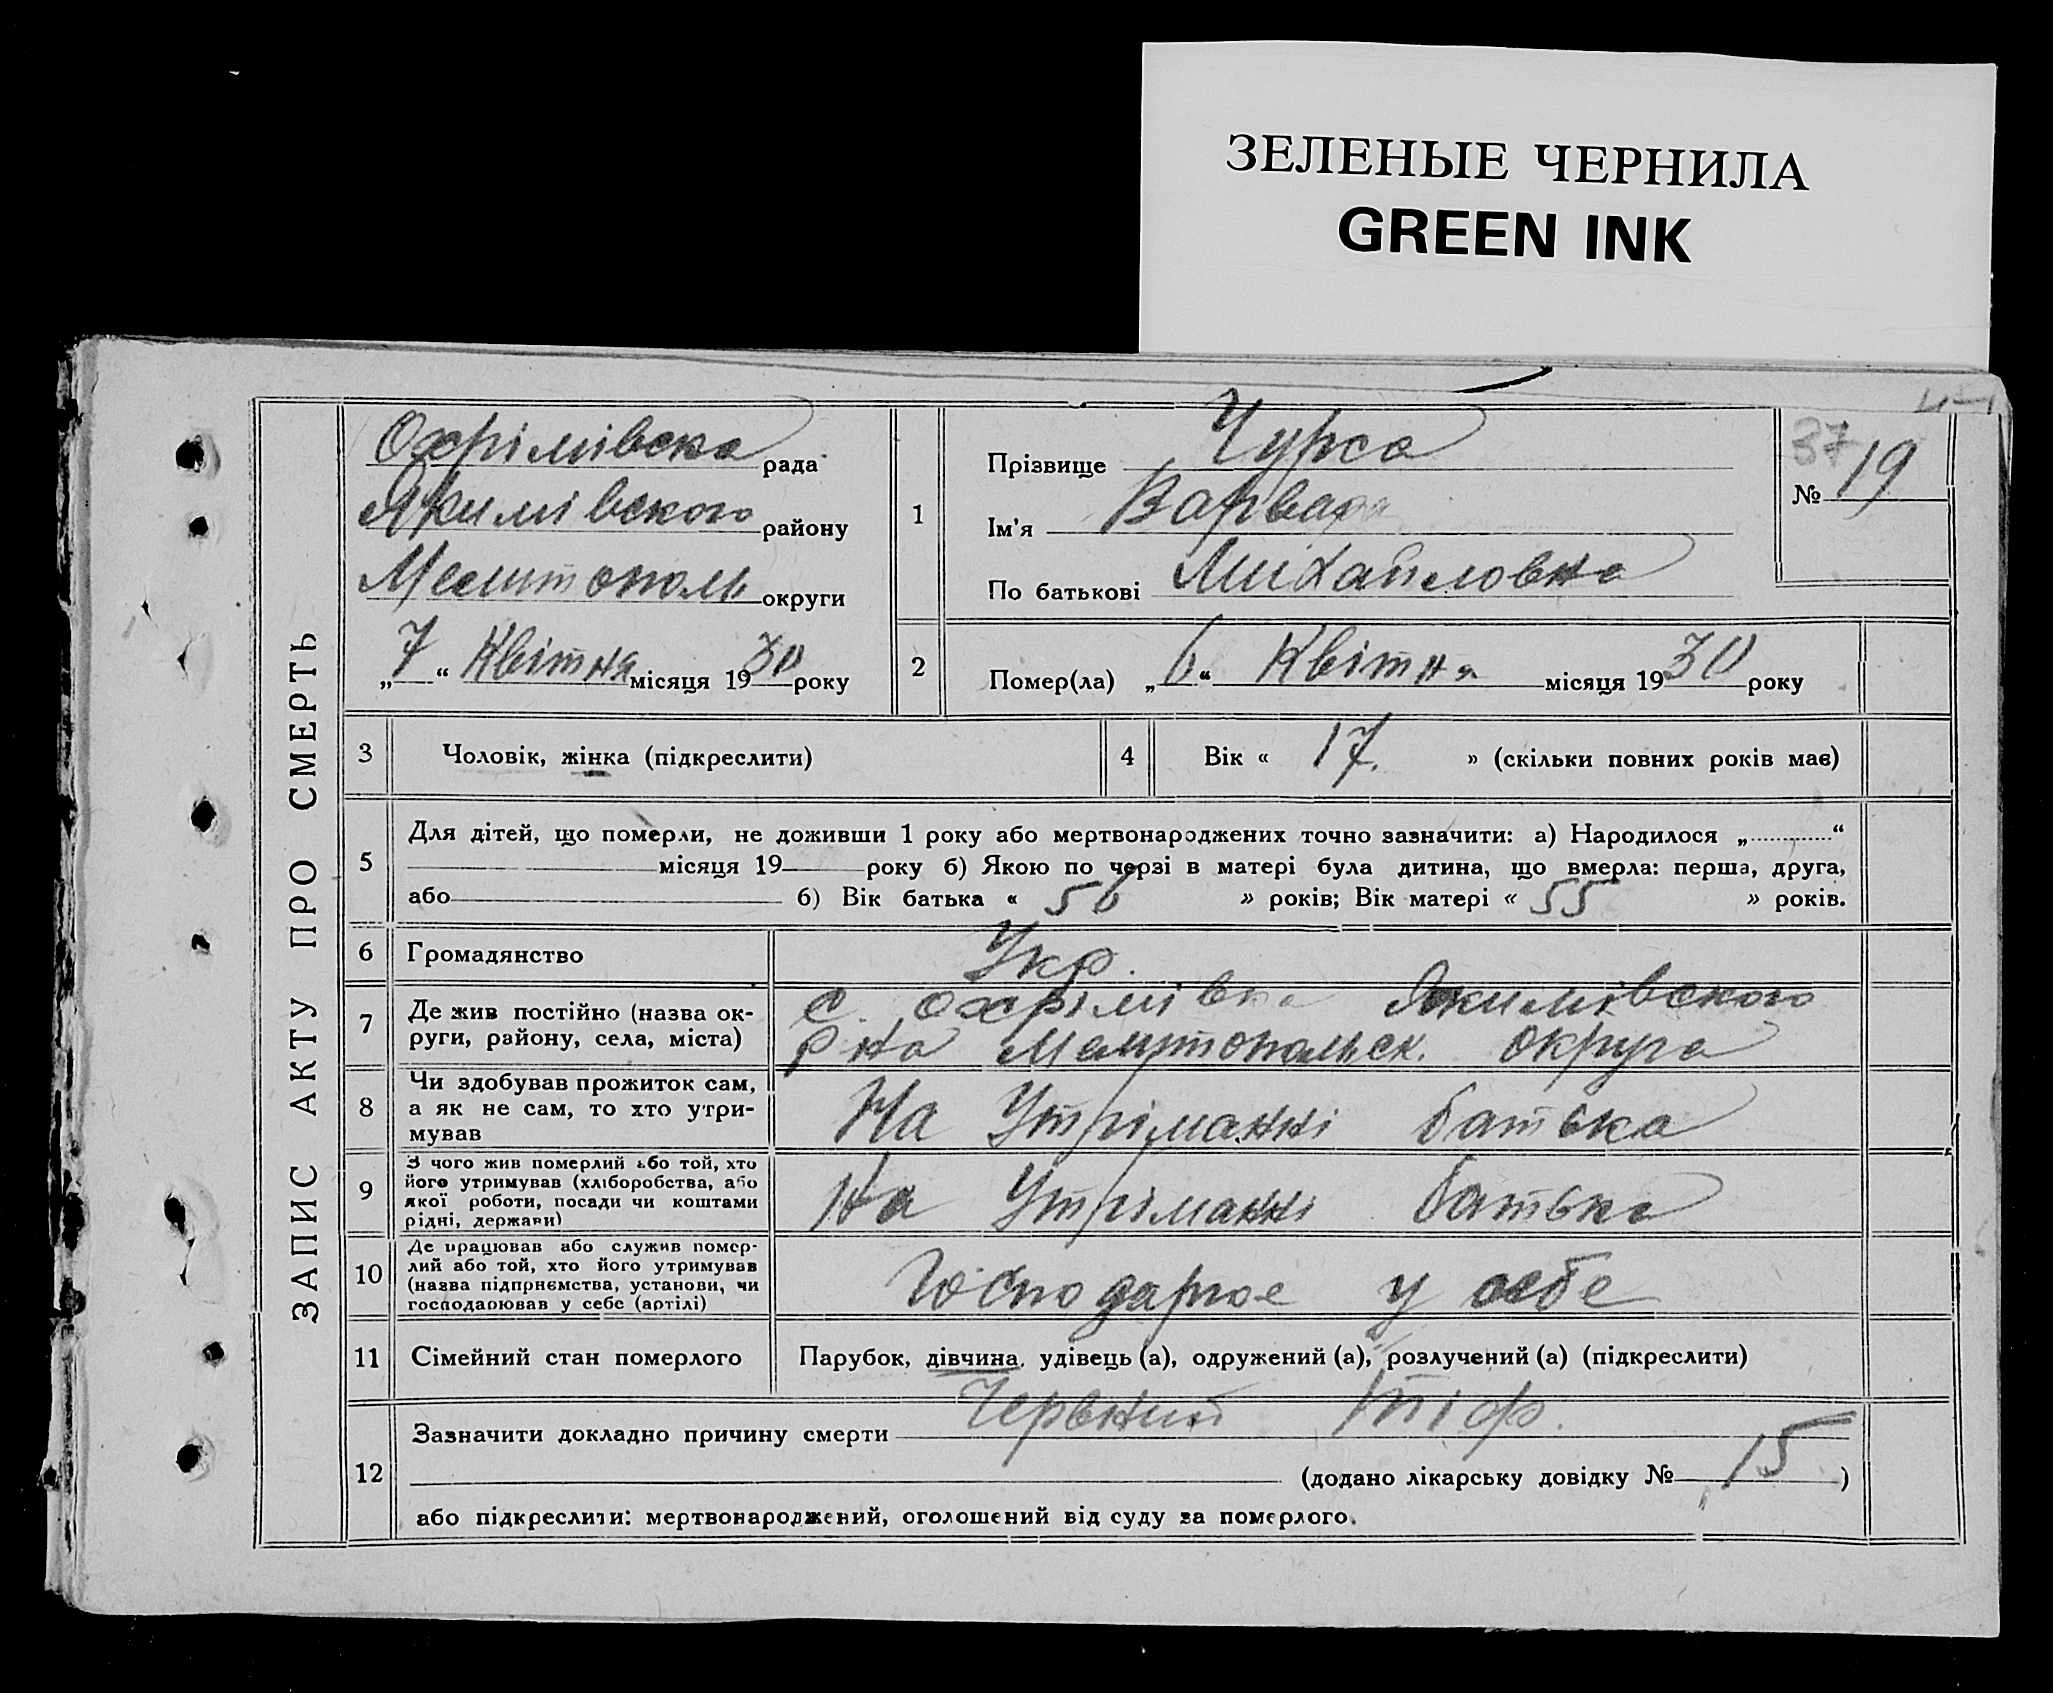 ЗЕЛЕНЫЕ ЧЕРНИЛА
GREEN INK
ЗАПИС АКТУ ПРО СМЕРТЬ
Охрімівска рада
Якимівского району
Мелитополь округи
„7“ Квітня місяця 1930 року
1
Прізвище Чурса
Ім'я Варвара
По батькові Михайловна
37
№ 19
2
Помер(ла) „6“ Квітня місяця 1930 року
3
Чоловік, жінка (підкреслити)
4
Вік « 17. » (скільки повних років має)
5
Для дітей, що померли, не доживши 1 року або мертвонароджених точно зазначити: а) Народилося „ “
місяця 19 року б) Якою по черзі в матері була дитина, що вмерла: перша, друга,
або б) Вік батька « 56 » років; Вік матері « 55 » років.
6
Громадянство
Укр.
7
Де жив постійно (назва ок-
руги, району, села, міста)
с. Охрімівка Якимівского
р на Мелитопольск. округа
8
Чи здобував прожиток сам,
а як не сам, то хто утри-
мував
На Утріманні батька
9
З чого жив померлий або той, хто
його утримував (хліборобства, або
якої роботи, посади чи коштами
рідні, держави)
На Утріманні батька
10
Де працював або служив помер-
лий або той, хто його утримував
(назва підприємства, установи, чи
господарював у себе (артілі)
Господарює у себе
11
Сімейний стан померлого
Парубок, дівчина, удівець (а), одружений (а), розлучений (а) (підкреслити)
12
Зазначити докладно причину смерти Червний тіф.
(додано лікарську довідку № 15)
або підкреслити: мертвонароджений, оголошений від суду за померлого.